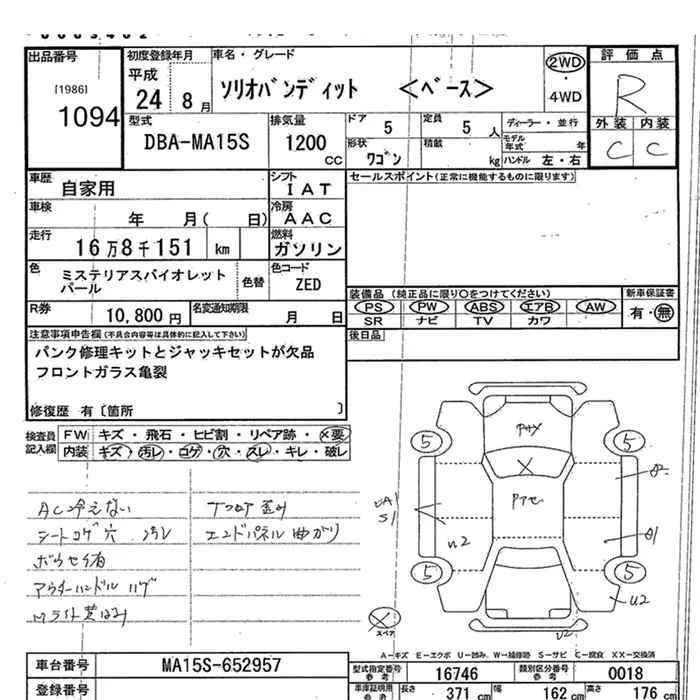 出品番号 初度登録年月 車名・グレード 評価点
[1986] 1094
平成 24 8月
ソリオバンディット <ベース>
2WD ・ 4WD
R
型式 DBA-MA15S
排気量 1200 cc
ドア 5 定員 5 人 ディーラー・並行
形状 ワゴン 積載 kg モデル年式 年 ハンドル 左・右
外装 内装
C C
車歴 自家用
シフト IAT
セールスポイント(正常に機能するものに限ります)
車検 年 月( 日)
冷房 AAC
走行 16万8千151 km
燃料 ガソリン
色 ミステリアスバイオレットパール 色替
色コード ZED
R券 10,800円 名変通知期限 月 日
装備品 (純正品に限り○をつけてください) 新車保証書
PS PW ABS エアB AW 有・無
SR ナビ TV カワ
注意事項申告欄(不具合内容等は具体的に記入して下さい)
後日品
パンク修理キットとジャッキセットが欠品
フロントガラス亀裂
修復歴 有〔箇所 〕
検査員記入欄
FW キズ・飛石・ヒビ割・リペア跡・X要
内装 キズ・汚レ・コゲ・穴・スレ・キレ・破レ
AC冷えない
シートコゲ穴 汚レ
アウターハンドル ハゲ
Mライト黄ばみ
エンドパネル曲がり
5 5
5 5
X
S1
U2
U2
スペア
A-キズ E-エクボ U-凹み W-補修跡 S-サビ C-腐食 XX-交換済
車台番号 MA15S-652957
型式指定番号 参考 16746 類別区分番号 参考 0018
登録番号
車庫証明用 参考 長さ 371 cm 幅 162 cm 高さ 176 cm